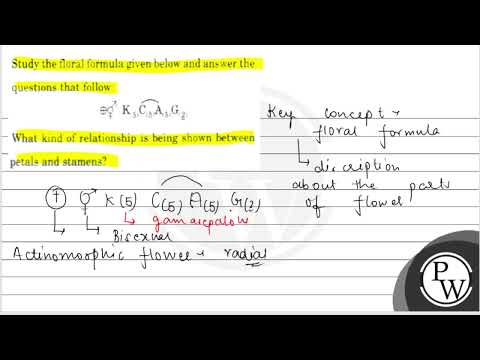 Study the floral formula given below and answer the
questions that follow:
⊕⚥ K₅,C₍₅₎A₅,G₍₂₎
What kind of relationship is being shown between
petals and stamens?
Key concept →
floral formula
↳ discription
about the parts
of flower
⊕ ⚥ K(5) C(5) A(5) G(2)
↳ gamosepalous
↳ Bisexual
Actinomorphic flower → radial
PW